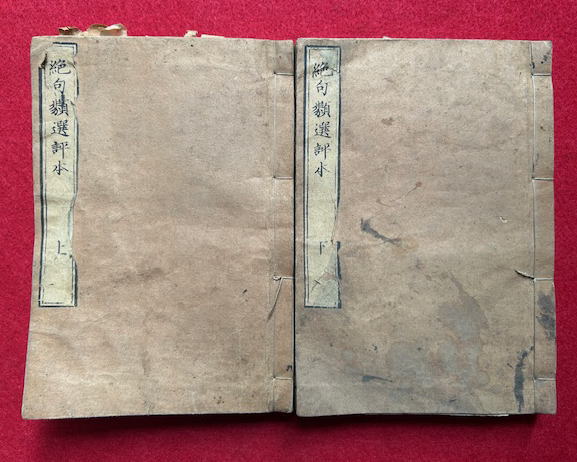 絶句類選評本 上
絶句類選評本 下